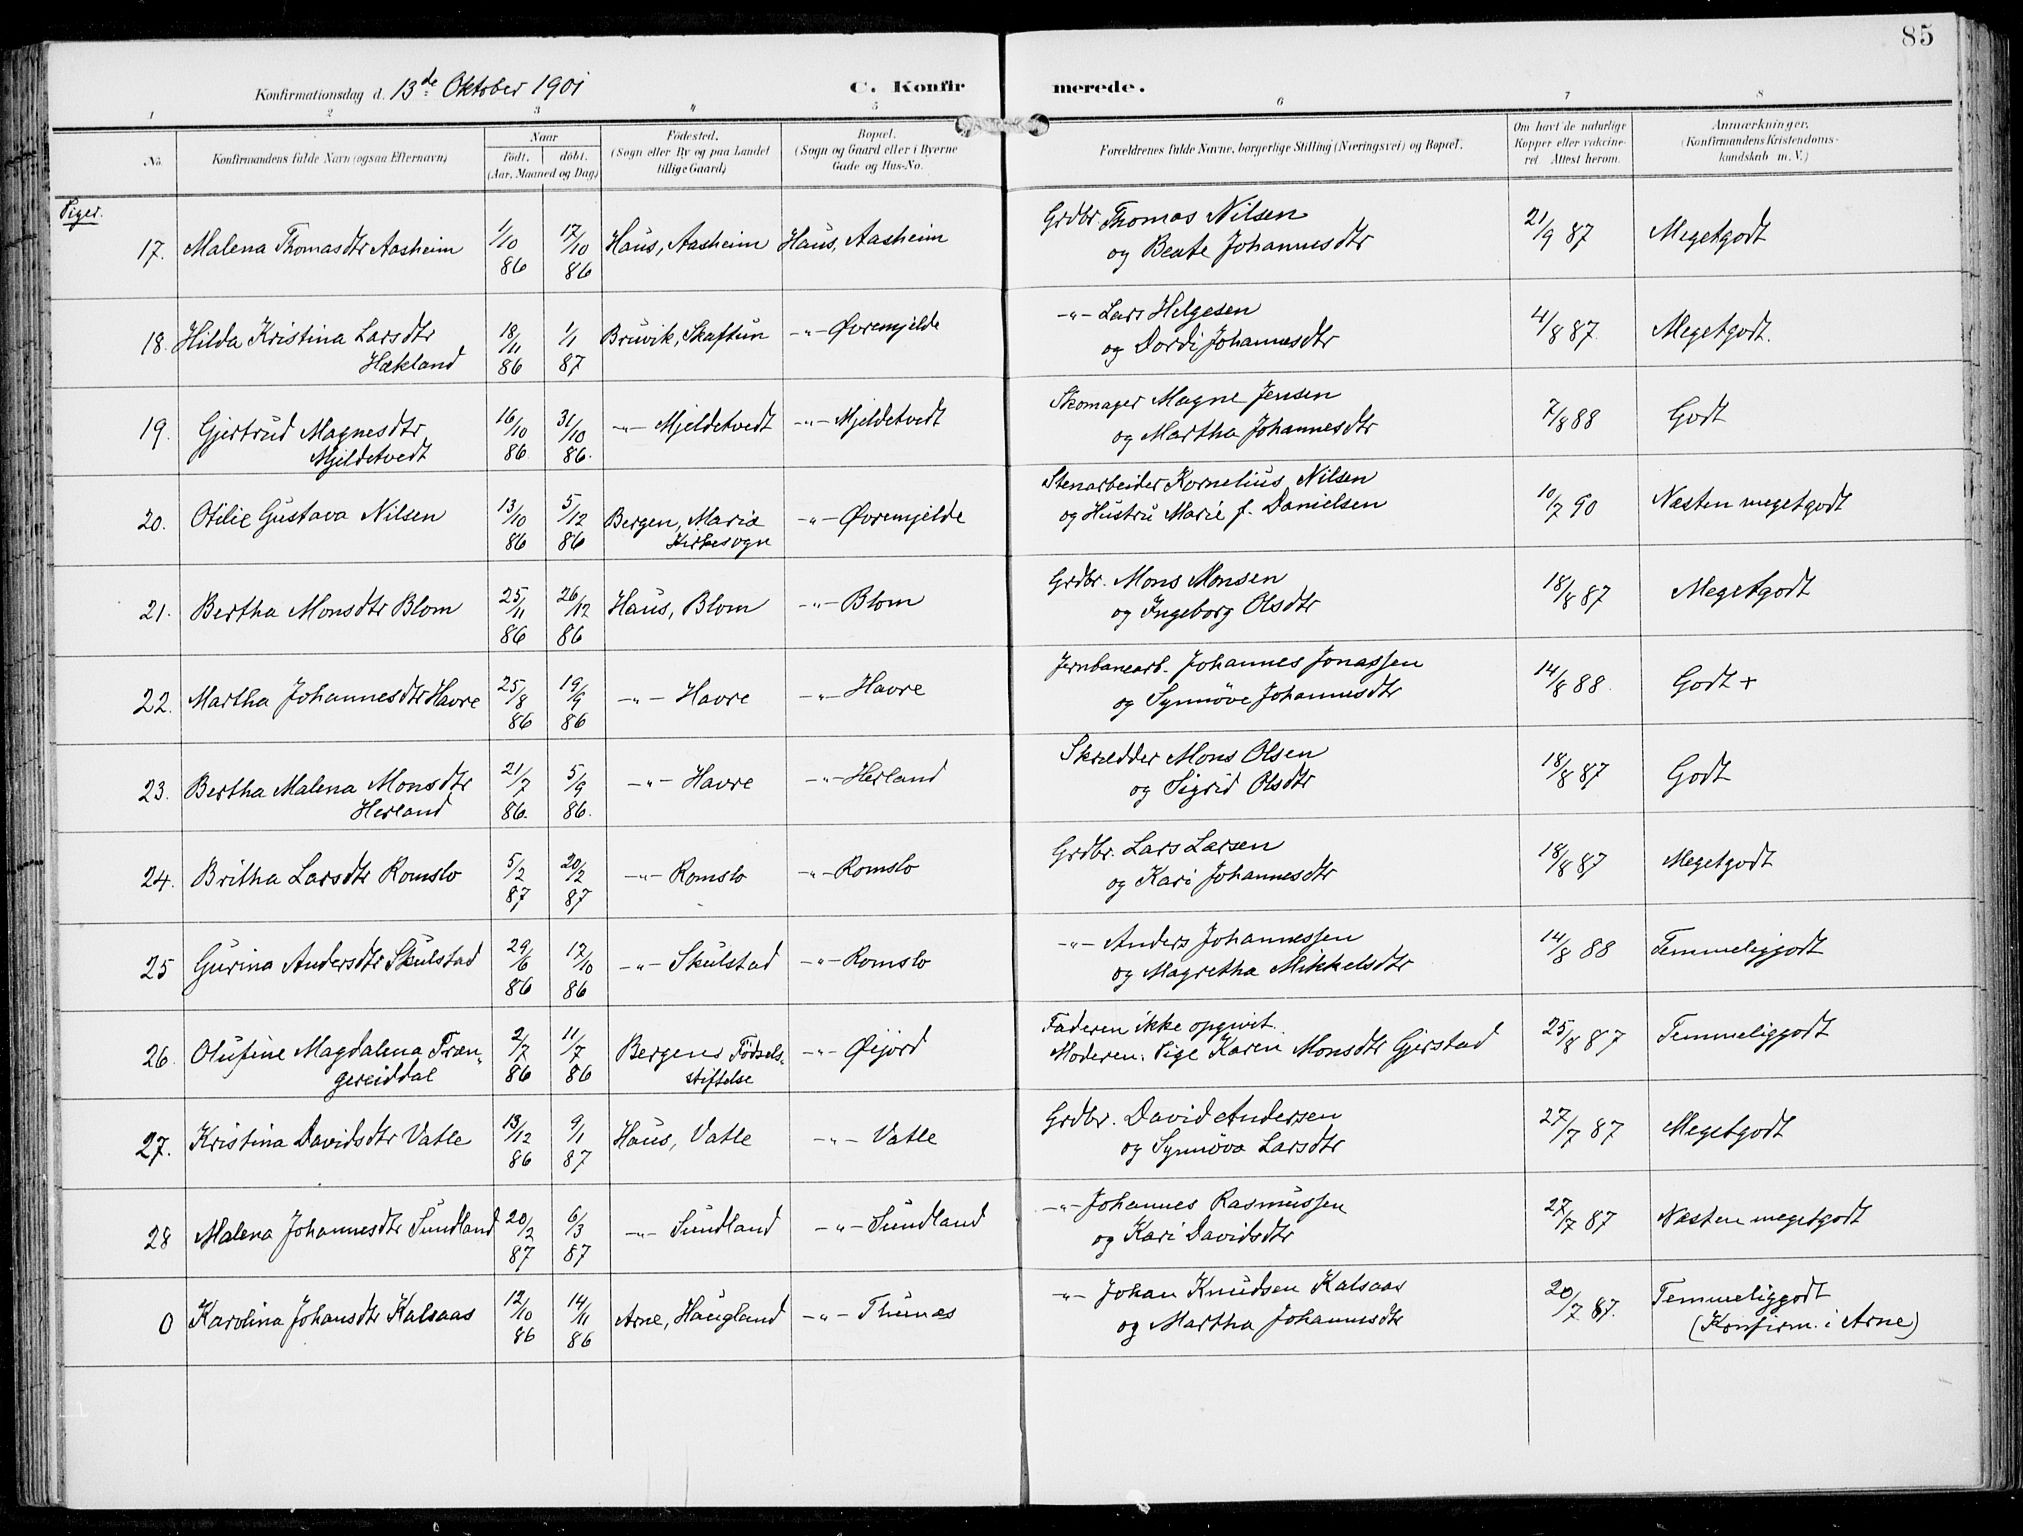 85
Konfirmationsdag d. 13de Oktober 1901 C. Konfirmerede.
1 2 3 4 5 6 7 8
No. Konfirmandens fulde Navn (ogsaa Efternavn) Naar födt. döbt. (Aar, Maaned og Dag) Födested. (Sogn eller By og paa Landet tillige Gaard) Bopæl. (Sogn og Gaard eller i Byerne Gade og Hus-No. Forældrenes fulde Navne, borgerlige Stilling (Næringsvei) og Bopæl. Om havt de naturlige Kopper eller vaccineret. Attest herom. Anmærkninger. (Konfirmandens Kristendomskundskab m. V.)
Piger.
17. Malena Thomasdtr Aasheim 1/10 86 17/10 86 Haus, Aasheim Haus, Aasheim Grdbr. Thomas Nilsen og Beate Johannesdtr 21/9 87 Megetgodt
18. Hilda Kristina Larsdtr Hækland 18/11 86 1/1 87 Bruvik, Skaftun -"- Øvremjelde -"- Lars Helgesen og Dordi Johannesdtr 4/8 87. Megetgodt.
19. Gjertrud Magnesdtr Mjeldetvedt 16/10 86. 31/10 86. -"- Mjeldetvedt -"- Mjeldetvedt Skomager Magne Jensen og Martha Johannesdtr 7/8 88 Godt
20. Otilie Gustava Nilsen 13/10 86 5/12 86 Bergen, Maria Kirkesogn -"- Øvremjelde Stenarbeider Kornelius Nilsen og Hustru Marie f. Danielsen 10/7 90 Næsten megetgodt
21. Bertha Monsdtr Blom 25/11 86 26/12 86 Haus, Blom -"- Blom Grdbr. Mons Monsen og Ingeborg Olsdtr 18/8 87 Megetgodt
22. Martha Johannesdtr Havre 25/8 86 19/9 86 -"- Havre -"- Havre Jernbanearb. Johannes Jonassen og Synnøve Johannesdtr 14/8 88. Godt +
23. Bertha Malena Monsdtr Herland 21/7 86. 5/9 86. -"- Havre -"- Herland Skrædder Mons Olsen og Sigrid Olsdtr 18/8 87 Godt
24. Britha Larsdtr Romslo 5/2 87 20/2 87 -"- Romslo -"- Romslo Grdbr. Lars Larsen og Kari Johannesdtr 18/8 87 Megetgodt
25 Gurina Andersdtr Skulstad 29/6 86 17/10 86 -"- Skulstad -"- Romslo -"- Anders Johannessen og Magretha Mikkelsdtr 14/8 88 Temmeliggodt
26. Olufine Magdalena Træn-gereiddal 2/7 86 11/7 86 Bergens Fødsels-stiftelse -"- Øijord Faderen ikke opgivet. Moderen: Pige Karen Monsdtr Gjerstad 25/8 87 Temmeliggodt
27. Kristina Davidsdtr Vatle 13/12 86 9/1 87 Haus, Vatle -"- Vatle Grdbr. David Andersen og Synnøva Larsdtr 27/7 87 Megetgodt
28 Malena Johannesdtr Sundland 20/2 87 6/3 87 -"- Sundland -"- Sundland -"- Johannes Rasmussen og Kari Davidsdtr 27/7 87 Næsten megetgodt
0 Karolina Johansdtr Kalsaas 12/10 86 14/11 86 Arne, Haugland -"- Thunes -"- Johan Knudsen Kalsaas og Martha Johannesdtr 20/7 87. Temmeliggodt (Konfirm. i Arne)